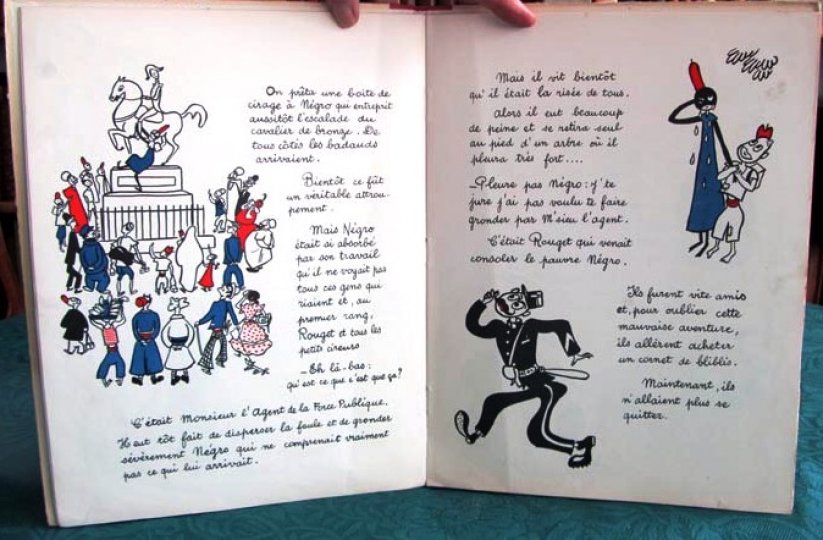 On prêta une boite de
cirage à Négro qui entreprit
aussitôt l'escalade du
cavalier de bronze. De
tous côtés les badauds
arrivaient.
Bientôt ce fût
un véritable attrou-
pement.
Mais Négro
était si absorbé
par son travail
qu'il ne voyait pas
tous ces gens qui
riaient et, au
premier rang,
Rouget et tous les
petits cireurs
_Eh là-bas:
qu'est ce que c'est que ça?
C'était Monsieur l'Agent de la Force Publique.
Il eut tôt fait de disperser la foule et de gronder
sévèrement Négro qui ne comprenait vraiment
pas ce qui lui arrivait.
Mais il vit bientôt
qu'il était la risée de tous.
Alors il eut beaucoup
de peine et se retira seul
au pied d'un arbre où il
pleura très fort....
_Pleure pas Négro: j'te
jure j'ai pas voulu te faire
gronder par M'sieu l'agent.
C'était Rouget qui venait
consoler le pauvre Négro.
Ils furent vite amis
et, pour oublier cette
mauvaise aventure,
ils allèrent acheter
un cornet de bliblis.
Maintenant, ils
n'allaient plus se
quitter.